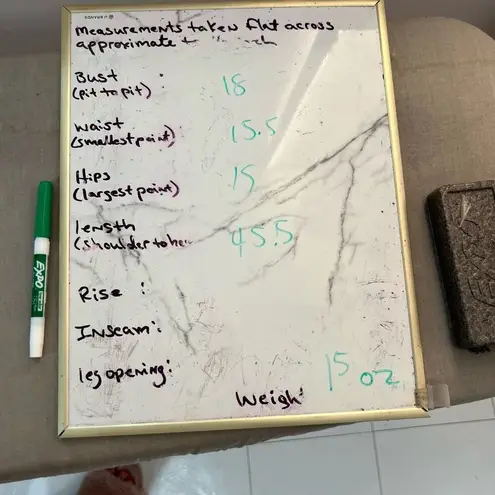 measurements taken flat across
approximate t
Bust :
(pit to pit) 18
waist
(smallest point) 15.5
Hips
(largest point) 15
length
(shoulder to he 45.5
Rise :
Inseam:
leg opening:
15 oz
Weigh:
EXPO